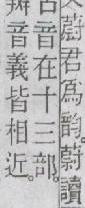 蔚君爲韵。蔚讀
古音在十三部。
辦音義皆相近。